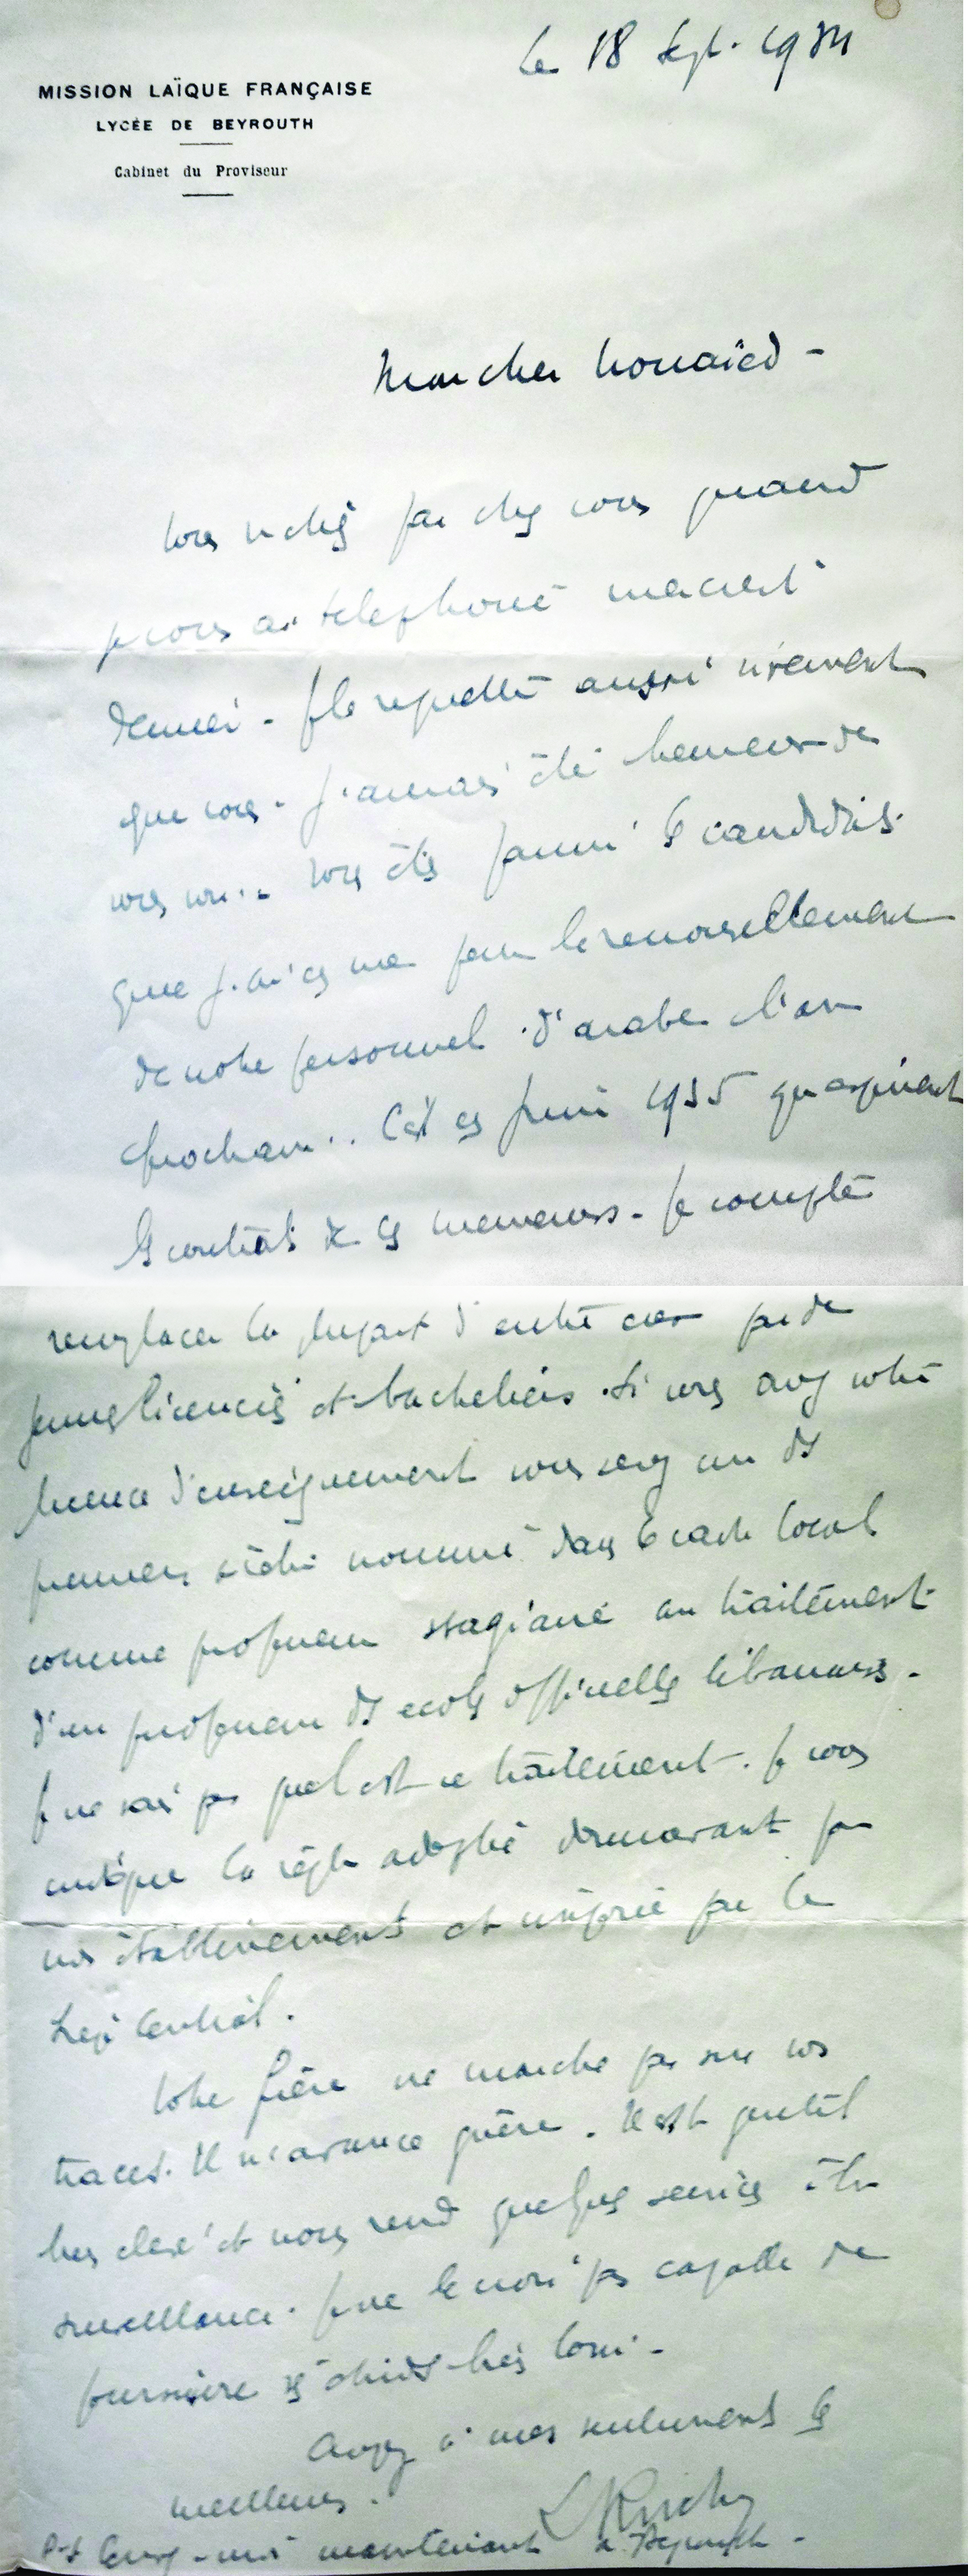 le 18 Sept. 1934
MISSION LAÏQUE FRANÇAISE
LYCÉE DE BEYROUTH
Cabinet du Proviseur
Mon cher Houaïed -
Vous n'étiez pas chez vous quand
je vous ai téléphoné mercredi
dernier - Je le regrette aussi vivement
que vous - J'aurais été heureux de
vous voir.. Vous êtes parmi les candidats
que j'ai en vue pour le renouvellement
de notre personnel d'arabe l'an
prochain.. C'est en Juin 1935 qu'expirent
les contrats de ces messieurs - Je compte
remplacer la plupart d'entre eux par de
jeunes licenciés et bacheliers. Si vous avez votre
licence d'enseignement vous serez un des
premiers à être nommé dans le cadre local
comme professeur stagiaire au traitement
d'un professeur des écoles officielles libanaises -
Je ne sais pas quel est ce traitement. Je vous
indique la règle adoptée dorénavant par
nos établissements et imposée par le
Siège Central.
Votre frère ne marche pas sur vos
traces. Il n'avance guère. Il est gentil
bien élevé et nous rend quelques services
surveillance. Je ne le crois pas capable de
poursuivre ses études très loin -
Croyez à mes sentiments les
meilleurs.
P-S maintenant à Beyrouth -